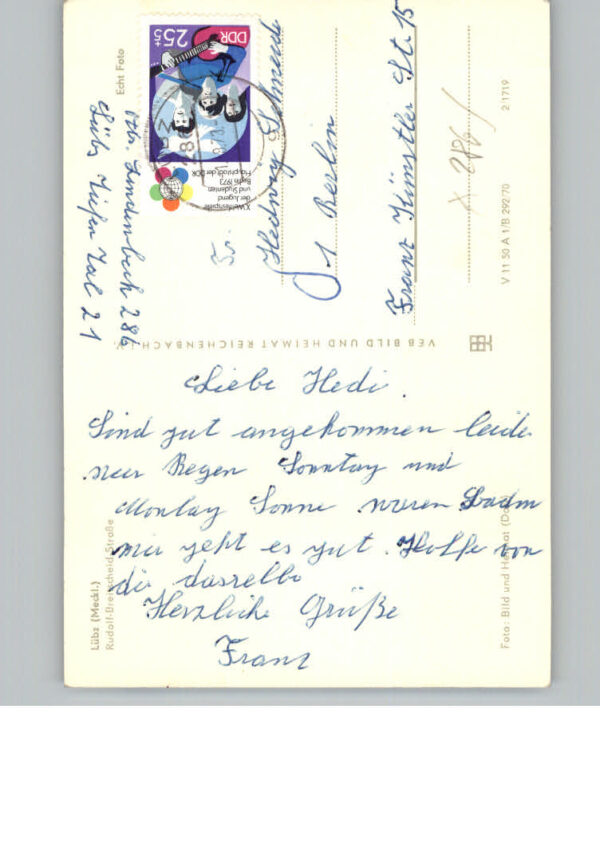 Liebe Hedi.
Sind gut angekommen leider
nur Regen Sonntag und
Montag Sonne waren Baden
mir geht es gut. Hoffe von
dir dasselbe
Herzliche Grüße
Franz
Fr.
Hedwig
1 Berlin
Franz Künstler Str. 15
286
Lübz Tiefen Tal 21
286
DDR
25+5
X. Weltfestspiele
der Jugend
und Studenten
Berlin 1973
Hauptstadt der DDR
Echt Foto
VEB BILD UND HEIMAT REICHENBACH I. V.
V 11 50 A 1/B 292 70
2 1719
Lübz (Meckl.)
Rudolf-Breitscheid-Straße
Foto: Bild und Heimat